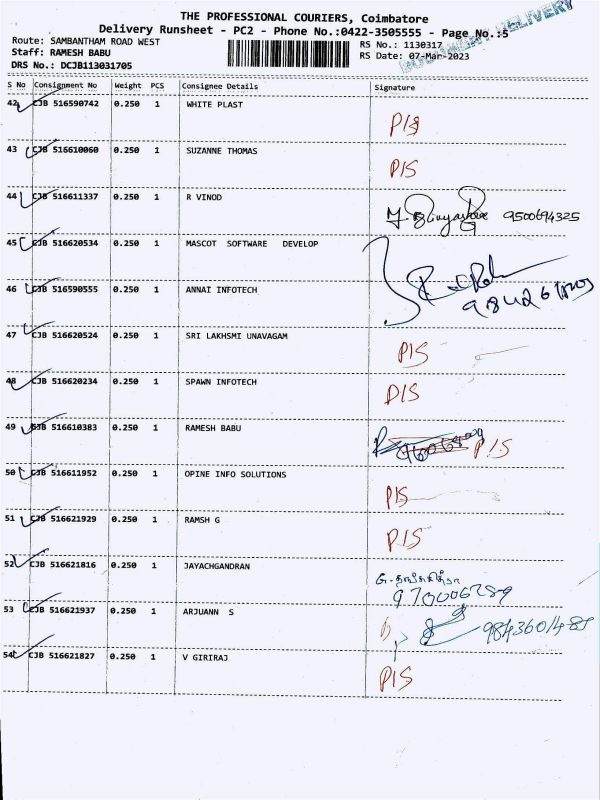 THE PROFESSIONAL COURIERS, Coimbatore
Delivery Runsheet - PC2 - Phone No.:0422-3505555 - Page No.:5
DELIVERY
Route: SAMBANTHAM ROAD WEST
RS No.: 1130317
Staff: RAMESH BABU
RS Date: 07-Mar-2023
DRS No.: DCJB113031705
S No Consignment No Weight PCS Consignee Details Signature
42 CJB 516590742 0.250 1 WHITE PLAST
P/S
43 CJB 516610060 0.250 1 SUZANNE THOMAS
P/S
44 CJB 516611337 0.250 1 R VINOD
9500694325
45 CJB 516620534 0.250 1 MASCOT SOFTWARE DEVELOP
46 CJB 516590555 0.250 1 ANNAI INFOTECH
47 CJB 516620524 0.250 1 SRI LAKHSMI UNAVAGAM
P/S
48 CJB 516620234 0.250 1 SPAWN INFOTECH
P/S
49 CJB 516610383 0.250 1 RAMESH BABU
P/S
50 CJB 516611952 0.250 1 OPINE INFO SOLUTIONS
P/S
51 CJB 516621929 0.250 1 RAMSH G
P/S
52 CJB 516621816 0.250 1 JAYACHGANDRAN
53 CJB 516621937 0.250 1 ARJUANN S
54 CJB 516621827 0.250 1 V GIRIRAJ
P/S